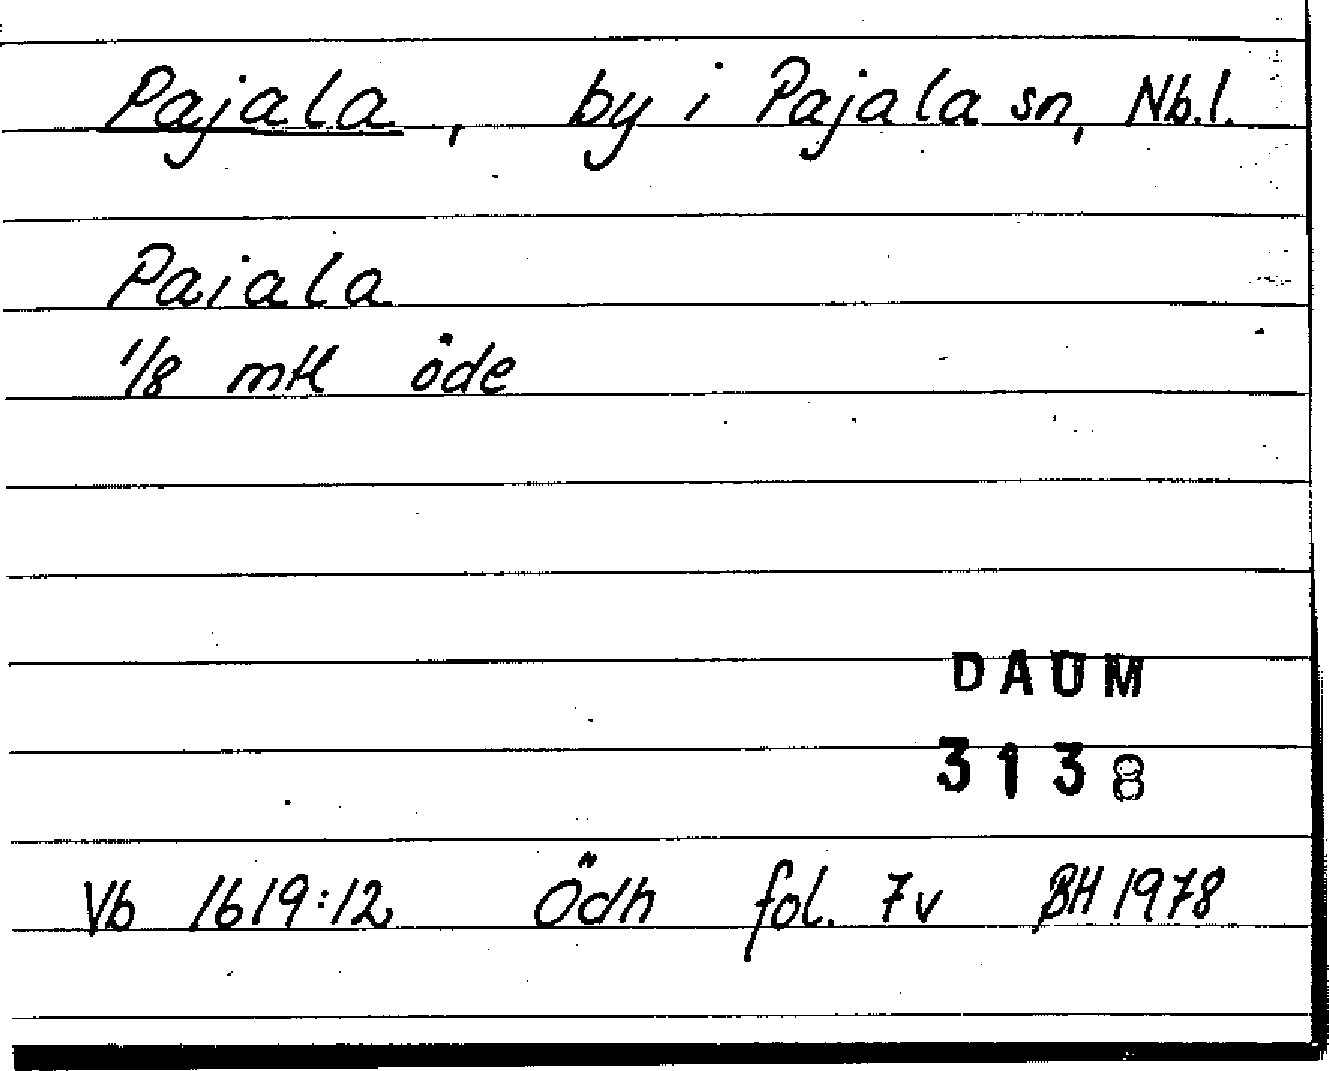 Pajala, by i Pajala sn, Nb.l.
Paiala
1/8 mtl öde
DAUM
3138
Vb 1619:12 Ödh fol. 7v BH 1978